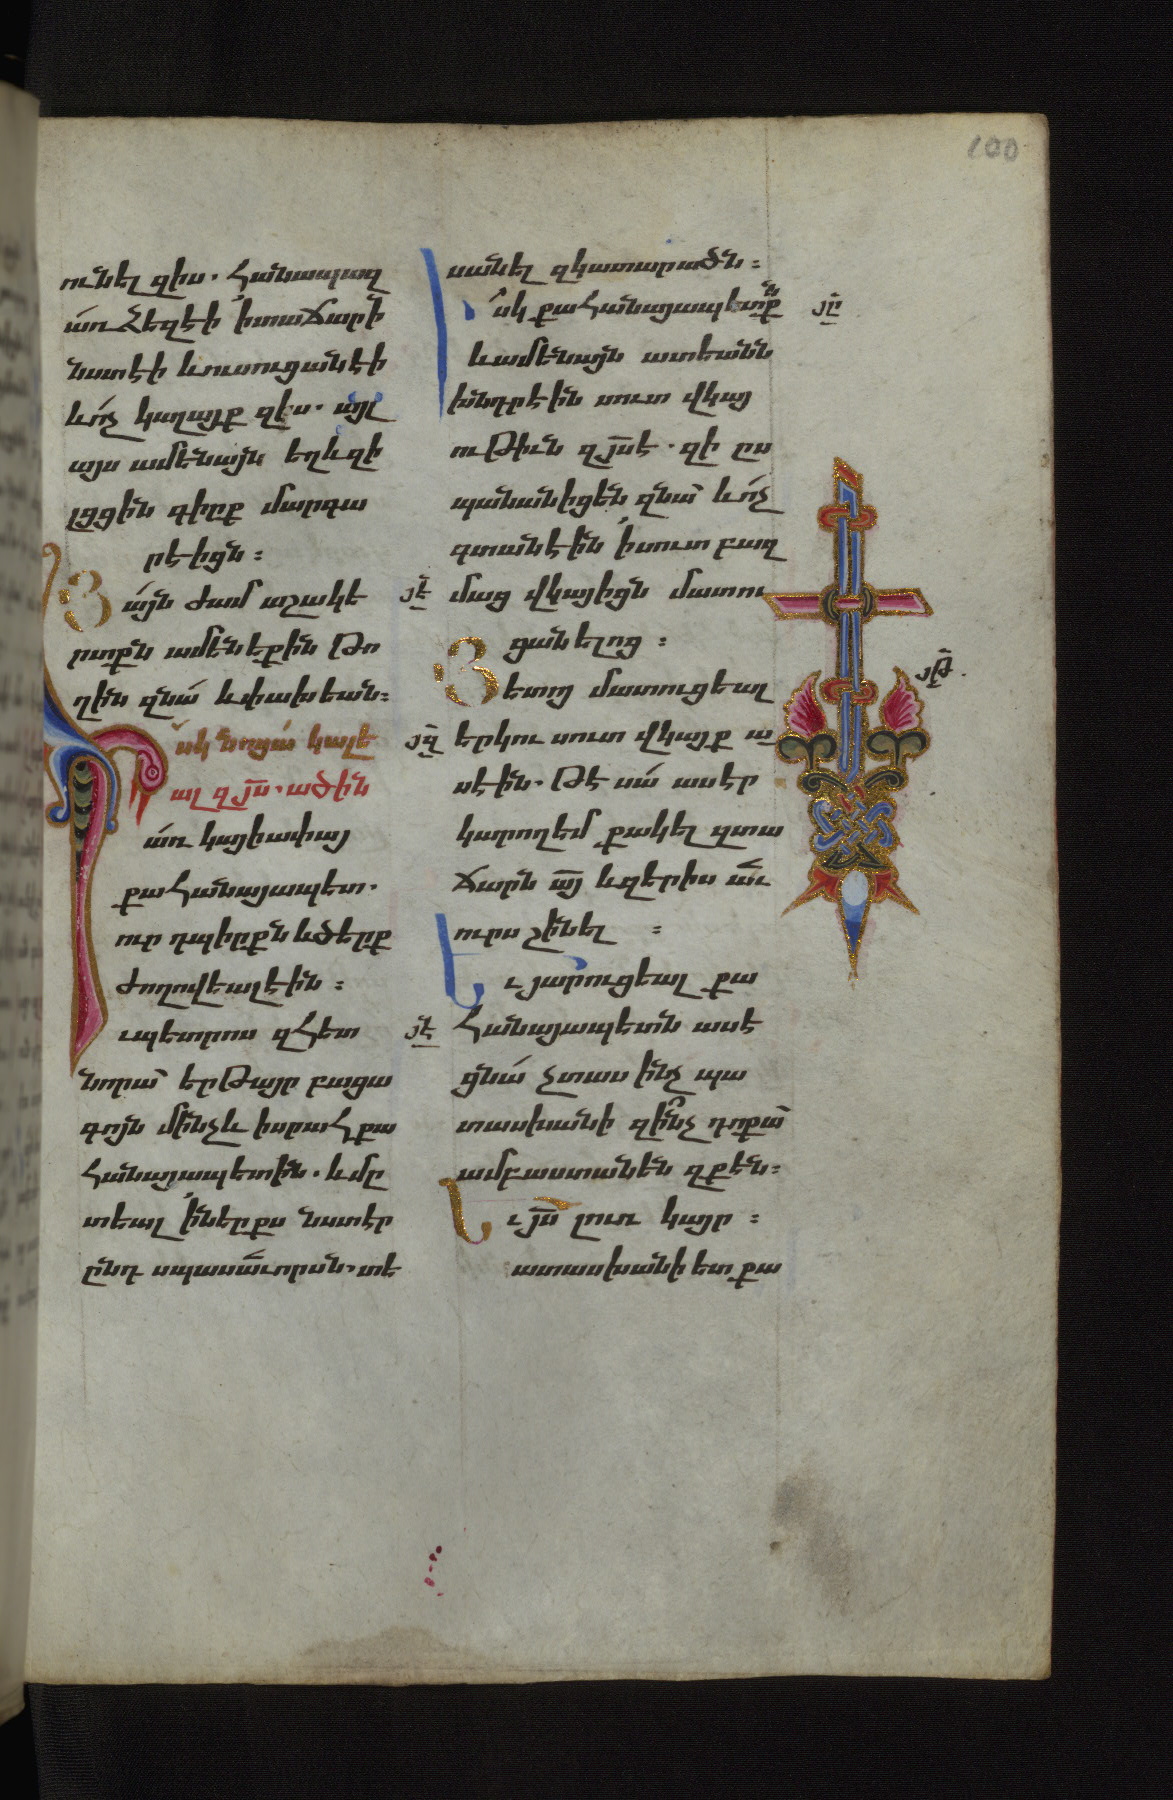 100
ունել զիս. հանապազ
առ ձեզ էի ի տաճարի
նստէի և ուսուցանէի
և ոչ կալայք զիս. այլ
այս ամենայն եղև զի
լցցին գիրք մարգա
րէիցն:
Յայն ժամ աշակե
րտքն ամենեքին թո
ղին զնա և փախեան:
Իսկ նոցա կալե
ալ զյս. ածին
առ կայիափայ
քահանայապետ.
ուր դպիրքն և ծերք
ժողովեալ էին:
ւ պետրոս զհետ
նորա երթայր բացա
գոյն մինչև ի սրահ քա
հանայապետին. և մը
տեալ ի ներքս նստէր
ընդ սպասաւորսն. տե
սանել զկատարածն:
Իսկ քահանայապետքն
և ամենայն ատեանն
խնդրէին սուտ վկայ
ութիւն զյսէ. զի ըս
պանանիցեն զնա և ոչ
գտանէին ի սուտ բազ
մաց վկայիցն մատու
ցանելոց:
Յետոյ մատուցեալ
երկու սուտ վկայք ա
սէին. թէ սա ասէր
կարող եմ քակել զտա
ճարն այ և զերիս աւ
ուրս շինել:
Եւ յարուցեալ քա
հանայապետն ասէ
ցնա չտաս ինչ պա
տասխանի զինչ դոքա
ամբաստանեն զքէն:
Եւ յս լուռ կայր:
ատասխանի ետ քա
յե
յզ
յէ
յը
յթ